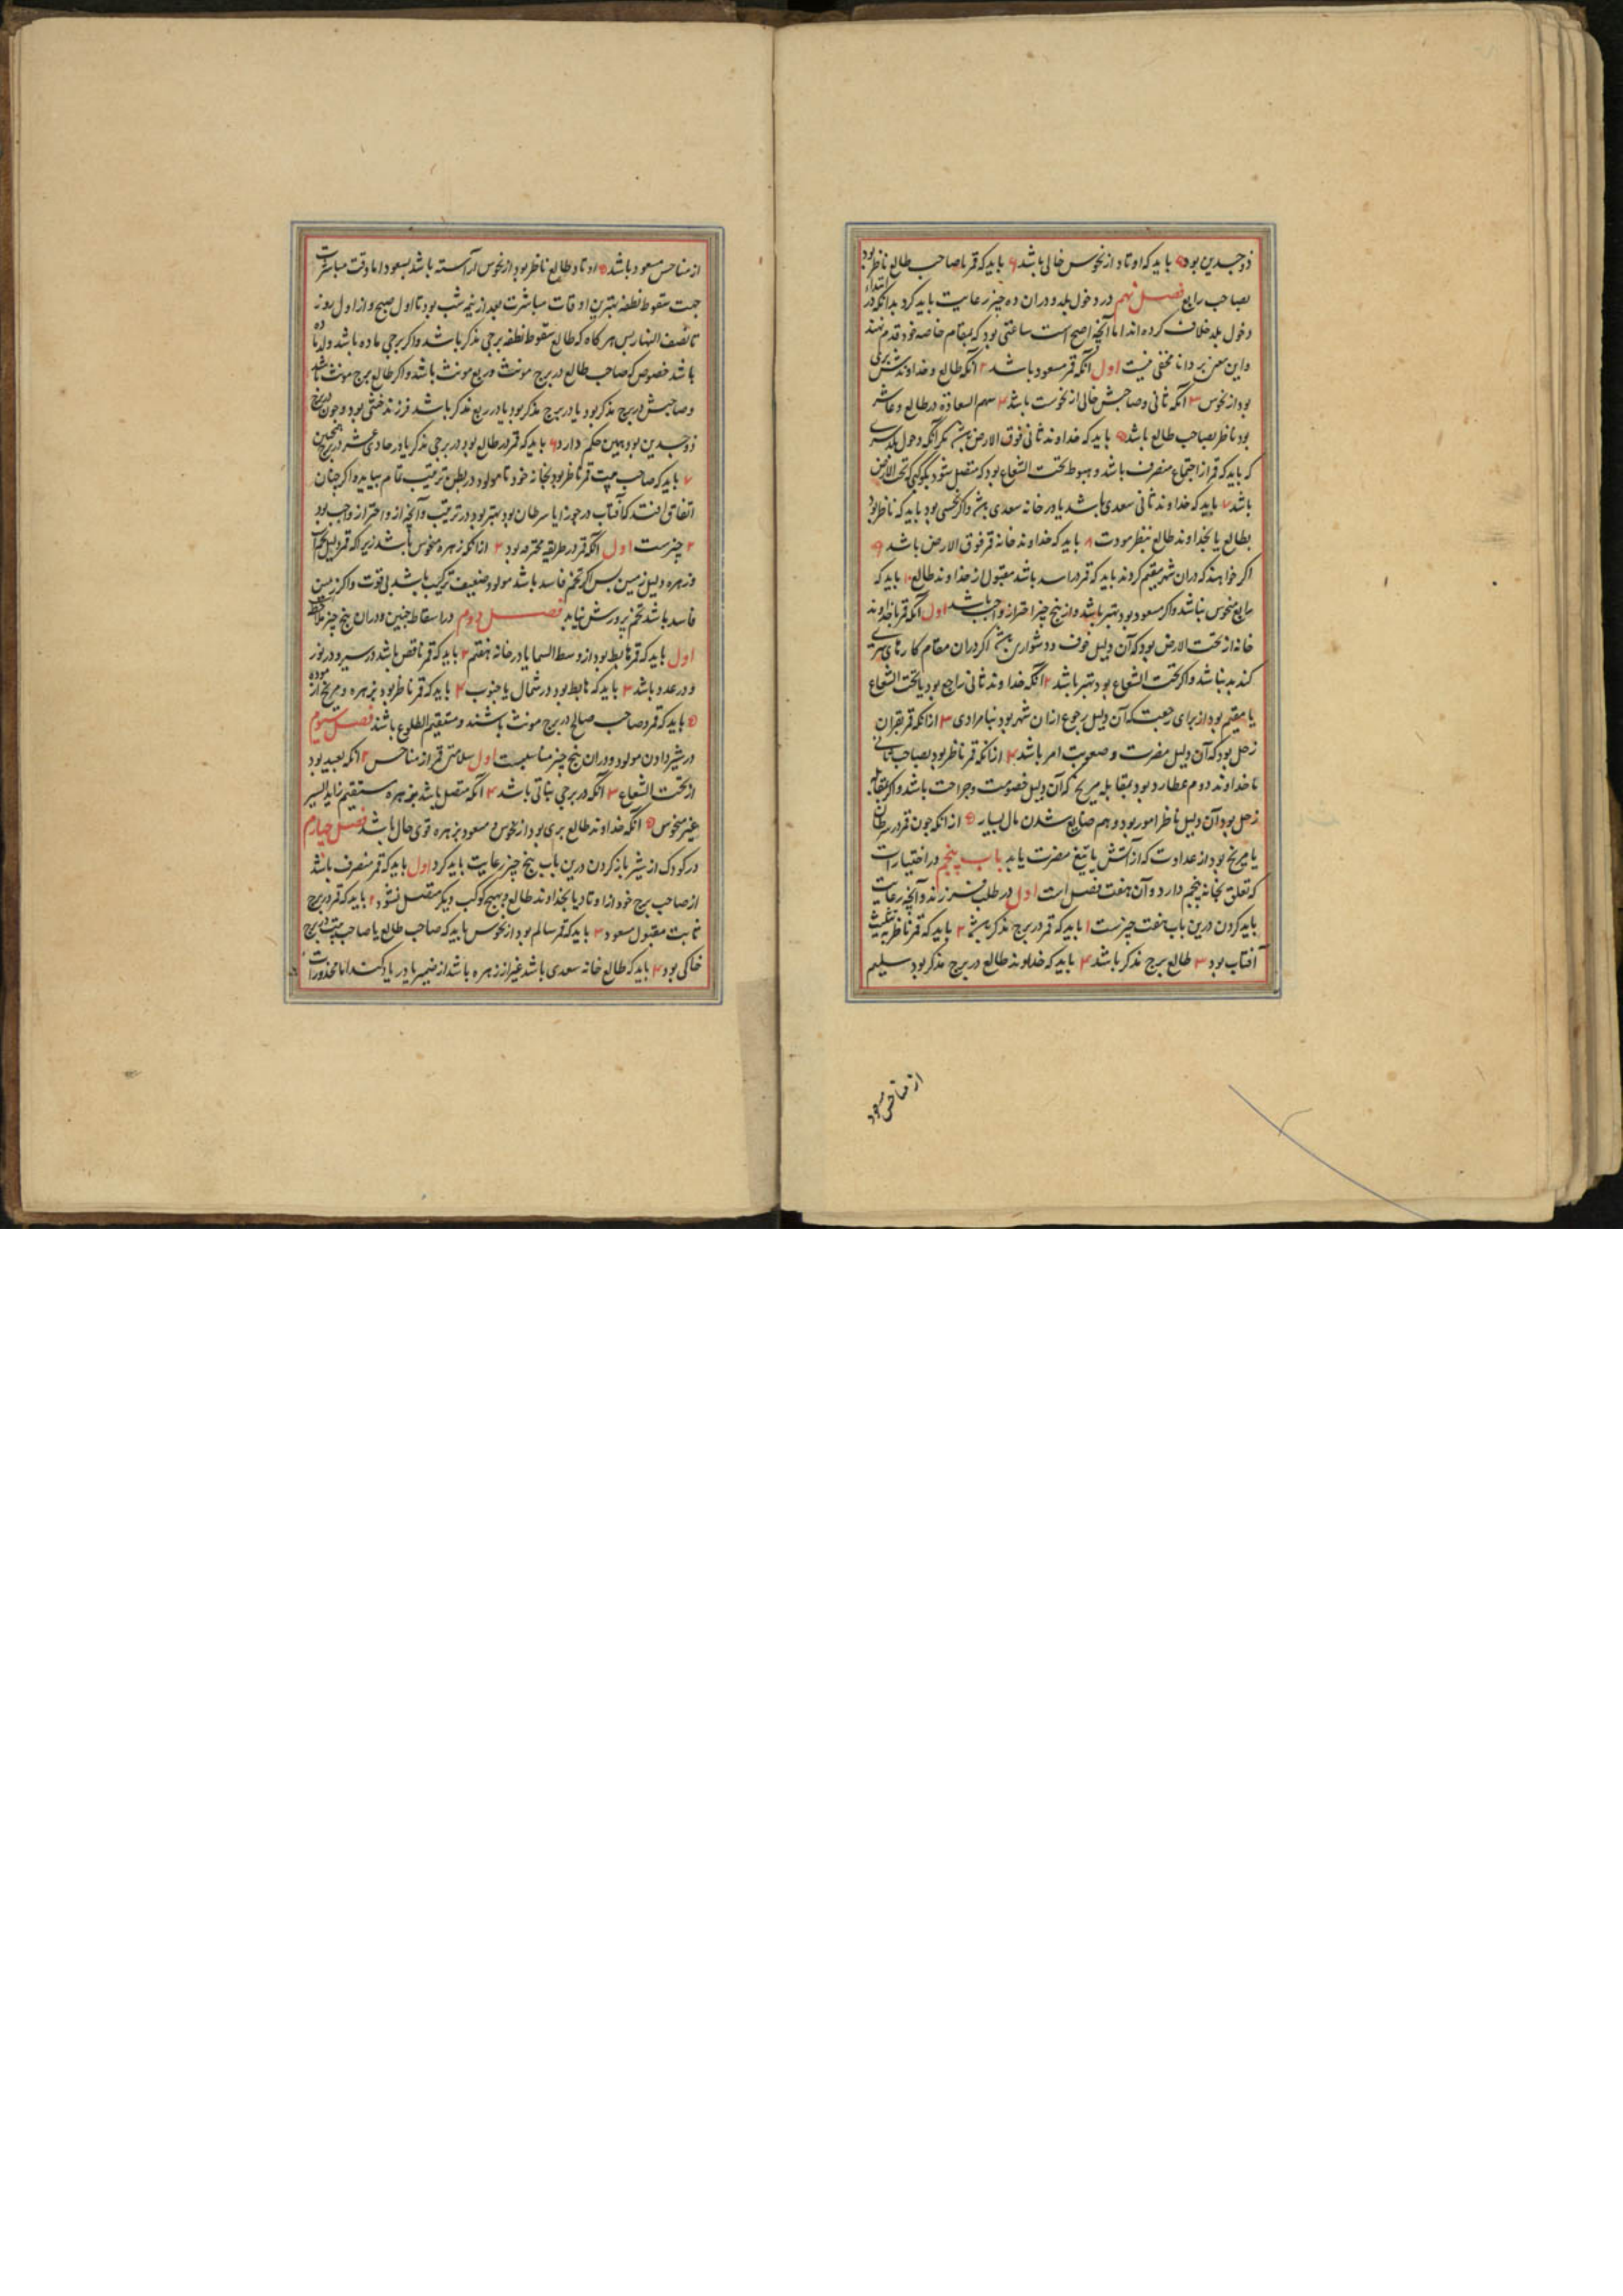 ذوجسدین بود ۵ باید که اوتاد از نحوس خالی باشد ۶ باید که قمر با صاحب طالع ناظر بود
بصاحب رابع فصل نهم در دخول بلد و دران ده چیز رعایت باید کرد بدانکه در ابتداء
دخول بلد خلاف کرده اند اما آنچه اصح است ساعتی بود که بمقام خاصه خود قدم نهند
و این معنی بر دانا مخفی نیست اول آنکه قمر مسعود باشد ۲ آنکه طالع و خداوندش بری
بود از نحوس ۳ آنکه ثانی و صاحبش خالی از نحوست باشد ۴ سهم السعادة در طالع و عاشر
بود ناظر بصاحب طالع باشد ۵ باید که خداوند ثانی فوق الارض مکر آنکه دخول بلد
که باید که قمر از اجتماع منصرف باشد و هبوط تحت الشعاع بود که متصل شود بکوکبی که تحت الارض
باشد ۷ باید که خداوند ثانی سعدی باشد یا در خانه سعدی و اکر نحسی بود باید که ناظر بود
بطالع یا بخداوند طالع بنظر مودت ۸ باید که خداوند خانه قمر فوق الارض باشد ۹
اکر خواهند که دران شهر مقیم کردند باید که قمر در اسد باشد مقبول از خداوند طالع ۱۰ باید که
رابع منحوس نباشد و اکر مسعود بود بهتر باشد و از پنج چیز احتراز واجب باشد اول آنکه قمر با خداوند
خانه از تحت الارض بود که آن دلیل خوف و دشواری اکر دران مقام کارهای سری
کند بد نباشد و اکر تحت الشعاع بود بهتر باشد ۲ آنکه خداوند ثانی راجع بود یا تحت الشعاع
یا مقیم بود از برای رجعت که آن دلیل رجوع ازان شهر بود بنامرادی ۳ ازانکه قمر بقران
زحل بود که آن دلیل مضرت و صعوبت امر باشد ۴ ازانکه قمر ناظر بود بصاحب ثانی
تا خداوند دوم عطارد بود بمقابله مریخ که آن دلیل خصومت و جراحت باشد و اکر بمقابله
زحل بود آن دلیل امور بود و هم ضایع شدن مال بسیار ۵ ازانکه چون قمر در سرطان
یا مریخ بود از عداوت که از آتش یا تیغ مضرت یابد باب پنجم در اختیارات
که تعلق بخانه پنجم دارد و آن هفت فصل است اول در طلب فرزند و آنچه رعایت
باید کردن درین باب هفت چیزست ۱ باید که قمر در برج مذکر ۲ باید که قمر ناظر بتثلیث
آفتاب بود ۳ طالع برج مذکر باشد ۴ باید که خداوند طالع در برج مذکر بود سلیم
از مناحس مسعود
از مناحس مسعود باشد ۵ اوتاد و طالع ناظر بود از نحوس آراسته باشد بسعود اما وقت مباشرت
جهت سقوط نطفه بهترین اوقات مباشرت بعد از نیم شب بود تا اول صبح و از اول روز
تا نصف النهار پس هرکاه که طالع سقوط نطفه برجی مذکر باشد و اکر برجی ماده باشد ولد ماده
باشد خصوص که صاحب طالع در برج مونث و ربع مونث باشد و اکر طالع برج مونث باشد
و صاحبش در برج مذکر بود یا در برج مذکر بود یا در ربع مذکر باشد فرزند خنثی بود و چون در برج
ذوجسدین بود همین حکم دارد ۶ باید که قمر در طالع بود در برجی مذکر یا در حادی عشر در برج همچنین
۷ باید که صاحب بیت قمر ناظر بود بخانه خود تا مولود در بطن ترتیب تمام بیابد و اکر چنان
اتفاق افتد که آفتاب در جوزا یا سرطان بود بهتر بود در ترتیب و آنچه از و احتراز واجب بود
۲ چیزست اول آنکه قمر در طریقه محترقه بود ۲ ازانکه زهره منحوس باشد زیرا که قمر دلیل تخم است
و زهره دلیل زمین پس اکر تخم فاسد باشد مولود ضعیف ترکیب باشد بی قوت و اکر زمین
فاسد باشد تخم پرورش نیابد فصل دوم در اسقاط جنین و دران پنج چیز ملاحظه
اول باید که قمر هابط بود از وسط السما یا در خانه هفتم ۲ باید که قمر ناقص باشد در سیر و در نور
و در عدد باشد ۳ باید که هابط بود در شمال یا جنوب ۴ باید که قمر ناظر بود بزهره و مریخ از
۵ باید که قمر و صاحب طالع در برج مونث باشند و مستقیم الطلوع باشند فصل سیوم
در شیر دادن مولود و دران پنج چیز مناسبست اول سلامتی قمر از مناحس ۲ آنکه بعید بود
از تحت الشعاع ۳ آنکه در برجی نباتی باشد ۴ آنکه متصل باشد بزهره مستقیم زاید السیر
غیر منحوس ۵ آنکه خداوند طالع بری بود از نحوس و مسعود بزهره قوی حال باشد فصل چهارم
در کودک از شیر باز کردن درین باب پنج چیز رعایت باید کرد اول باید که قمر منصرف باشد
از صاحب برج خود از اوتاد یا بخداوند طالع و بهیچ کوکب دیکر متصل نشود ۲ باید که قمر در برج
ثابت مقبول مسعود ۳ باید که قمر سالم بود از نحوس باید که صاحب طالع یا صاحب بیت در برج
خاکی بود ۴ باید که طالع خانه سعدی باشد غیر از زهره باشد از ضمیر اما محذورات